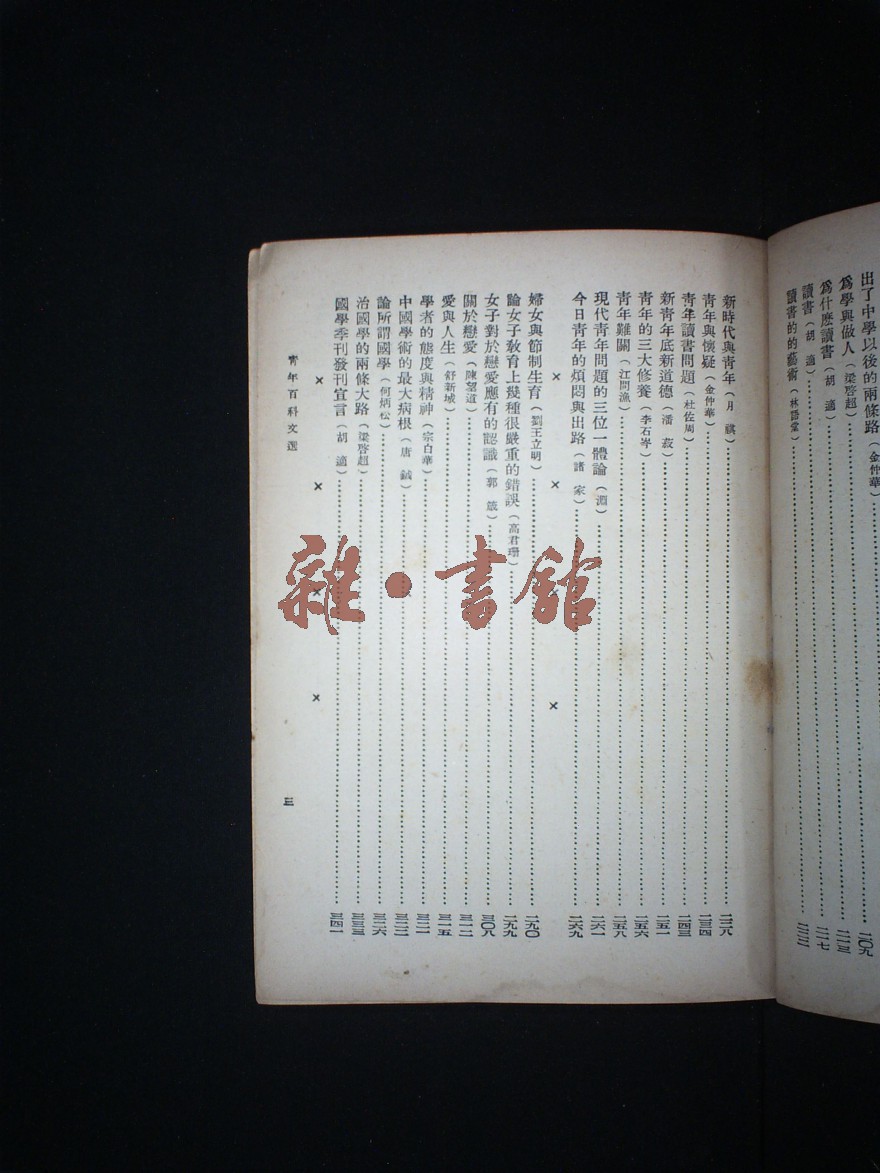 出了中學以後的兩條路（金仲華）……二〇九
爲學與做人（梁啓超）……二一三
爲什麽讀書（胡適）……二一七
讀書（胡適）……
讀書的的藝術（林語堂）……二二二
新時代與青年（月祺）……二二八
青年與懷疑（金仲華）……二三四
青年讀書問題（杜佐周）……二四三
新青年底新道德（潘菽）……二五一
青年的三大修養（李石岑）……二五六
青年難關（江問漁）……二五八
現代青年問題的三位一體論（淵）……二六一
今日青年的煩悶與出路（諸家）……二六九
× × × ×
婦女與節制生育（劉王立明）……二九〇
論女子教育上幾種很嚴重的錯誤（高君珊）……二九九
女子對於戀愛應有的認識（郭箴）……三〇八
關於戀愛（陳望道）……三一二
愛與人生（舒新城）……三一五
學者的態度與精神（宗白華）……三二一
中國學術的最大病根（唐鉞）……三二二
論所謂國學（何炳松）……三二六
治國學的兩條大路（梁啓超）……三三三
國學季刊發刊宣言（胡適）……三四一
× × × ×
青年百科文選
三
雜·書館